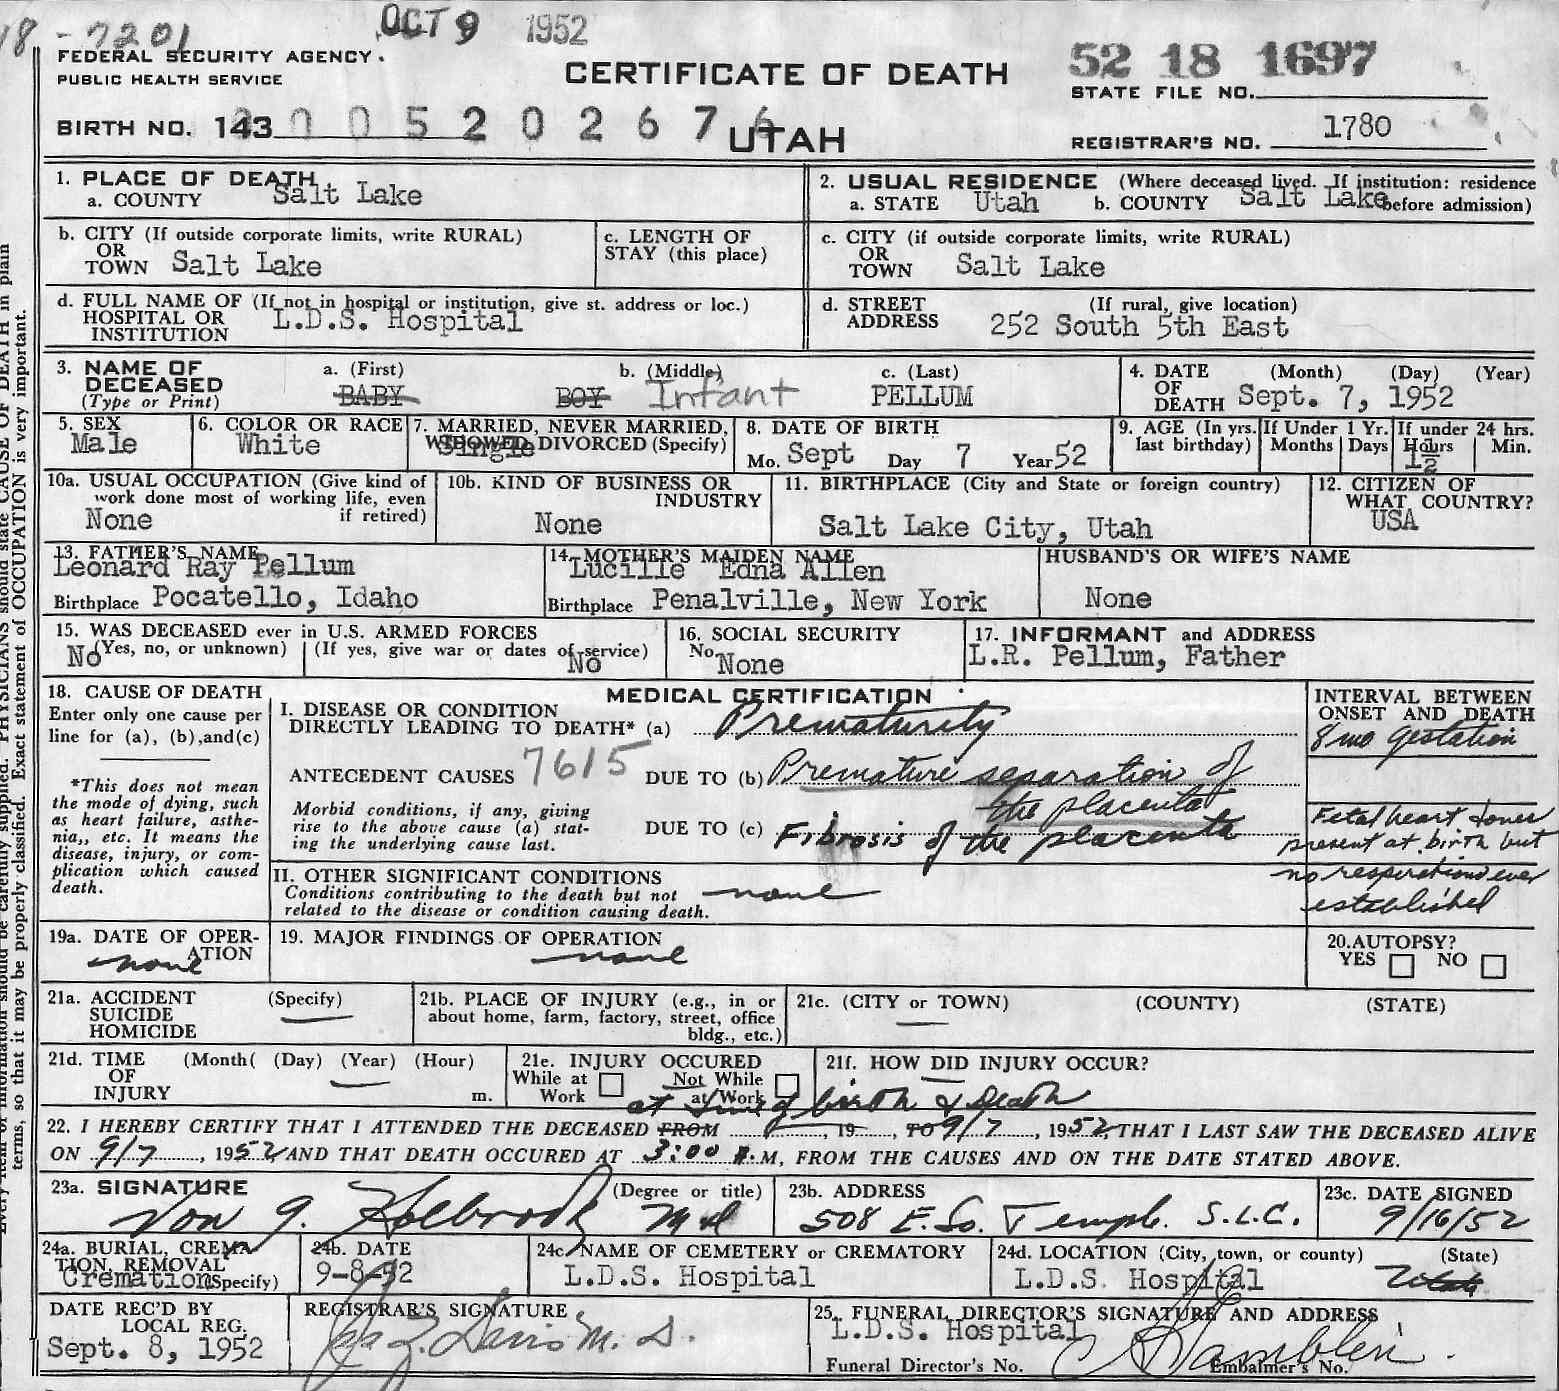 18-7201
OCT 9 1952
FEDERAL SECURITY AGENCY.
PUBLIC HEALTH SERVICE
CERTIFICATE OF DEATH
52 18 1697
STATE FILE NO.
BIRTH NO. 143 0052026 7 6
UTAH
REGISTRAR'S NO. 1780
1. PLACE OF DEATH
a. COUNTY Salt Lake
2. USUAL RESIDENCE (Where deceased lived. If institution: residence before admission)
a. STATE Utah b. COUNTY Salt Lake
b. CITY (If outside corporate limits, write RURAL)
OR
TOWN Salt Lake
c. LENGTH OF
STAY (this place)
c. CITY (if outside corporate limits, write RURAL)
OR
TOWN Salt Lake
d. FULL NAME OF (If not in hospital or institution, give st. address or loc.)
HOSPITAL OR
INSTITUTION L.D.S. Hospital
d. STREET (If rural, give location)
ADDRESS 252 South 5th East
3. NAME OF
DECEASED
(Type or Print)
a. (First) b. (Middle) c. (Last)
BABY BOY Infant PELLUM
4. DATE (Month) (Day) (Year)
OF
DEATH Sept. 7, 1952
5. SEX
Male
6. COLOR OR RACE
White
7. MARRIED, NEVER MARRIED,
WIDOWED, DIVORCED (Specify)
Single
8. DATE OF BIRTH
Mo. Sept Day 7 Year 52
9. AGE (In yrs. last birthday)
If Under 1 Yr.
Months Days
If under 24 hrs.
Hours Min.
1½
10a. USUAL OCCUPATION (Give kind of
work done most of working life, even
if retired)
None
10b. KIND OF BUSINESS OR
INDUSTRY
None
11. BIRTHPLACE (City and State or foreign country)
Salt Lake City, Utah
12. CITIZEN OF
WHAT COUNTRY?
USA
13. FATHER'S NAME
Leonard Ray Pellum
Birthplace Pocatello, Idaho
14. MOTHER'S MAIDEN NAME
Lucille Edna Allen
Birthplace Penalville, New York
HUSBAND'S OR WIFE'S NAME
None
15. WAS DECEASED ever in U.S. ARMED FORCES
(Yes, no, or unknown) (If yes, give war or dates of service)
No No
16. SOCIAL SECURITY
No. None
17. INFORMANT and ADDRESS
L.R. Pellum, Father
18. CAUSE OF DEATH
Enter only one cause per
line for (a), (b), and (c)
*This does not mean
the mode of dying, such
as heart failure, asthe-
nia,, etc. It means the
disease, injury, or com-
plication which caused
death.
MEDICAL CERTIFICATION
I. DISEASE OR CONDITION
DIRECTLY LEADING TO DEATH* (a) Prematurity
ANTECEDENT CAUSES 7615 DUE TO (b) Premature separation of
the placenta
Morbid conditions, if any, giving
rise to the above cause (a) stat-
ing the underlying cause last.
DUE TO (c) Fibrosis of the placenta
II. OTHER SIGNIFICANT CONDITIONS
Conditions contributing to the death but not
related to the disease or condition causing death.
none
INTERVAL BETWEEN
ONSET AND DEATH
8 mo gestation
Fetal heart tones
present at birth but
no respirations ever
established
19a. DATE OF OPER-
ATION
none
19. MAJOR FINDINGS OF OPERATION
none
20. AUTOPSY?
YES NO
21a. ACCIDENT (Specify)
SUICIDE
HOMICIDE
21b. PLACE OF INJURY (e.g., in or
about home, farm, factory, street, office
bldg., etc.)
21c. (CITY or TOWN) (COUNTY) (STATE)
21d. TIME (Month( (Day) (Year) (Hour)
OF
INJURY m.
21e. INJURY OCCURED
While at Work
Not While at Work
21f. HOW DID INJURY OCCUR?
at time of birth & Death
22. I HEREBY CERTIFY THAT I ATTENDED THE DECEASED FROM , 19 , TO 9/7 , 1952, THAT I LAST SAW THE DECEASED ALIVE
ON 9/7 , 1952, AND THAT DEATH OCCURED AT 3:00 .M, FROM THE CAUSES AND ON THE DATE STATED ABOVE.
23a. SIGNATURE (Degree or title)
Von G. Holbrook MD
23b. ADDRESS
508 E. So. Temple. S.L.C.
23c. DATE SIGNED
9/16/52
24a. BURIAL, CREMA-
TION, REMOVAL
(Specify)
Cremation
24b. DATE
9-8-52
24c. NAME OF CEMETERY or CREMATORY
L.D.S. Hospital
24d. LOCATION (City, town, or county) (State)
L.D.S. Hospital Utah
DATE REC'D BY
LOCAL REG.
Sept. 8, 1952
REGISTRAR'S SIGNATURE
Davis M. D.
25. FUNERAL DIRECTOR'S SIGNATURE AND ADDRESS
L.D.S. Hospital
Funeral Director's No. Embalmer's No.
terms, so that it may be properly classified. Exact statement of OCCUPATION is very important.